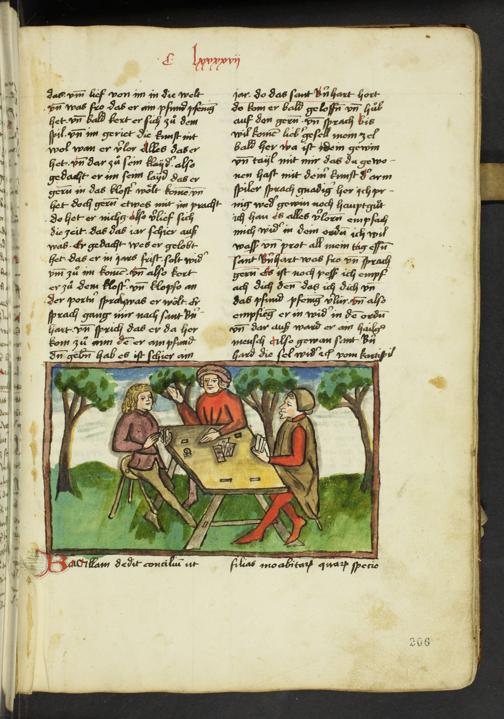 C lxxxxvij
das vm̃ lief von im in die welt
vn̄ was fro das er am pfund pfeng
het. vn̄ bald kert er sich zů dem
spil. vn̄ im geriet die kunst nit
wol wan er ṽlor alles das er
het. vn̄ dar zů sein klayd. also
gedacht er im sein layd das er
gern in das klost̃ wölt
het doch gern etwes mit im pracht
do het er nichtz also ṽlief sich
die zeit. das das jar schier auß
was. er gedacht wes er gelobt
het das er in jars frist solt wid̃
vm̃ zů im kome. vn̄ also kert
er zů dem klost̃. vn̄ klopfte an
der portñ sprach was er wölt. Er
sprach gang mir nach sant B̃n
hart. vn̄ sprich das er da her
kom zů im der er am pfund
dn̄ gebñ hab es ist schier am
jar. do das sant B̃nhart hort
do kom er bald geloffñ vn̄ hůb
auf den gern vn̄ sprach bis
wil kome lieb̃ gesell mein zel
bald her wa ist mein gewin
vn̄ tayl mit mir das du gewo-
nen hast mit deim kunst d̃ arm
spiler sprach gnädig̃ her ich pr-
ing wed̃ gewin noch hauptgůt
ich hau es alles ṽlorn empfach
mich wid̃ in dem ordñ ich wil
wass̃ vn̄ prot all mein tag essñ
sant B̃nhart was fro vn̄ sprach
gern es ist noch pess̃ ich empf
ach dich den das ich dich vn̄
das pfund pfeng ṽlür. vn̄ also
empfieng er in wid̃ in de ordñ
vn̄ dar auß ward er am hailig̃
mensch also gewan sant B̃n
hard die sel wid̃
Balaam dedit conciliũ ut
filias moabitarũ quarũ specio
206